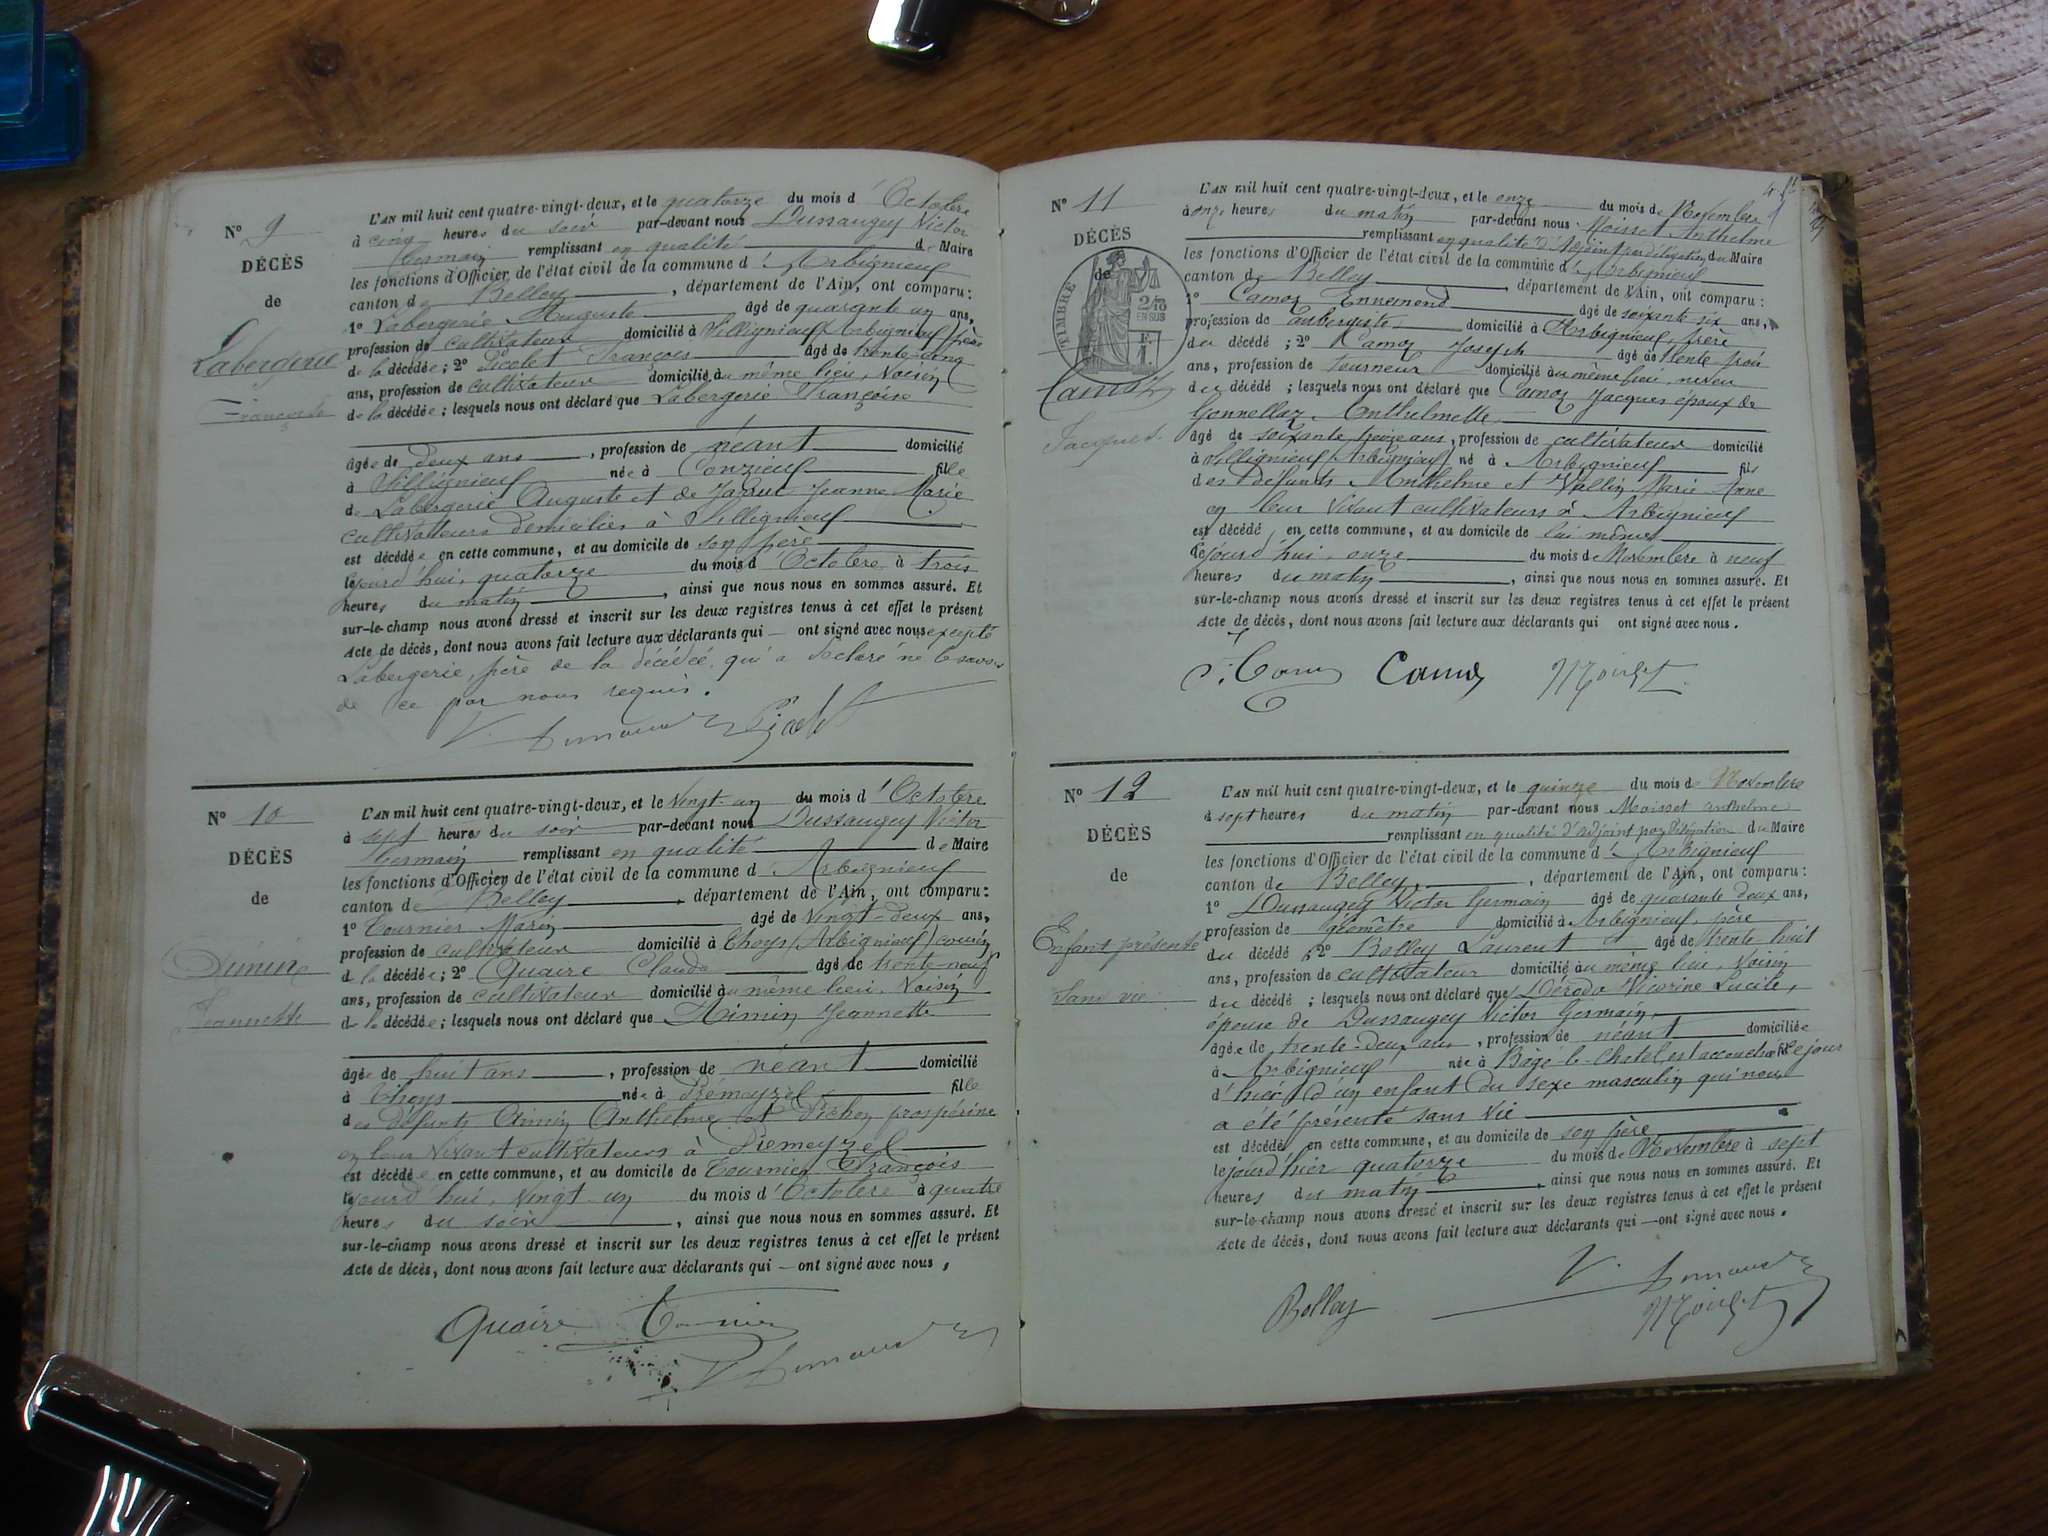 N° 9
DÉCÈS
de
Labergerie
Françoise
L'AN mil huit cent quatre-vingt-deux, et le quatorze du mois d'Octobre
à cinq heures du soir par-devant nous Dussaugey Victor
Germain remplissant en qualité de Maire
les fonctions d'Officier de l'état civil de la commune d'Arbignieu
canton de Belley, département de l'Ain, ont comparu:
1° Labergerie Auguste âgé de quarante un ans,
profession de cultivateur domicilié à Sillignieu (Arbignieu) père
de la décédée; 2° Picolet François âgé de trente cinq
ans, profession de cultivateur domicilié au même lieu, voisin
de la décédée; lesquels nous ont déclaré que Labergerie Françoise
âgée de deux ans, profession de néant domicilié
à Sillignieu née à Conzieu fille
de Labergerie Auguste et de Jeanne Marie
cultivateurs domiciliés à Sillignieu
est décédée en cette commune, et au domicile de son père
lejourd'hui, quatorze du mois d'Octobre à trois
heures du matin, ainsi que nous nous en sommes assuré. Et
sur-le-champ nous avons dressé et inscrit sur les deux registres tenus à cet effet le présent
Acte de décès, dont nous avons fait lecture aux déclarants qui — ont signé avec nous excepté
Labergerie, père de la décédée, qui a déclaré ne le savoir
de ce par nous requis.
N° 10
DÉCÈS
de
Jeannette
L'AN mil huit cent quatre-vingt-deux, et le vingt-un du mois d'Octobre
à sept heures du soir par-devant nous Dussaugey Victor
Germain remplissant en qualité de Maire
les fonctions d'Officier de l'état civil de la commune d'Arbignieu
canton de Belley, département de l'Ain, ont comparu:
1° Tournier Marin âgé de vingt-deux ans,
profession de cultivateur domicilié à Thoys (Arbignieu) cousin
de la décédée; 2° Quaire Claude âgé de trente-neuf
ans, profession de cultivateur domicilié au même lieu, voisin
de la décédée; lesquels nous ont déclaré que Jeannette
âgée de huit ans, profession de néant domicilié
à Thoys née à Prémeyzel fille
des défunts Anthelme et prospérine
en leur vivant cultivateurs à Prémeyzel
est décédée en cette commune, et au domicile de Tournier François
lejourd'hui, vingt-un du mois d'Octobre à quatre
heures du soir, ainsi que nous nous en sommes assuré. Et
sur-le-champ nous avons dressé et inscrit sur les deux registres tenus à cet effet le présent
Acte de décès, dont nous avons fait lecture aux déclarants qui — ont signé avec nous,
Quaire Tournier
N° 11
DÉCÈS
de
TIMBRE
2/10
EN SUS
Camoz
Jacques
L'AN mil huit cent quatre-vingt-deux, et le onze du mois de Novembre
à onze heures du matin par-devant nous Moisset Anthelme
remplissant en qualité d'Adjoint par délégation du Maire
les fonctions d'Officier de l'état civil de la commune d'Arbignieu
canton de Belley, département de l'Ain, ont comparu:
1° Camoz Ennemond âgé de soixante six ans,
profession de aubergiste domicilié à Arbignieu, frère
du décédé; 2° Camoz Joseph âgé de trente trois
ans, profession de tourneur domicilié au même lieu, neveu
du décédé; lesquels nous ont déclaré que Camoz Jacques époux de
Gonnellaz Anthelmette
âgé de soixante treize ans, profession de cultivateur domicilié
à Sillignieu (Arbignieu) né à Arbignieu fils
des défunts Anthelme et Vallin Marie Anne
en leur vivant cultivateurs à Arbignieu
est décédé, en cette commune, et au domicile de lui même
lejourd'hui, onze du mois de Novembre à neuf
heures du matin, ainsi que nous nous en sommes assuré. Et
sur-le-champ nous avons dressé et inscrit sur les deux registres tenus à cet effet le présent
Acte de décès, dont nous avons fait lecture aux déclarants qui ont signé avec nous.
J. Camoz Camoz Moisset
N° 12
DÉCÈS
de
Enfant présenté
Sans vie
L'AN mil huit cent quatre-vingt-deux, et le quinze du mois de Novembre
à sept heures du matin par-devant nous Moisset Anthelme
remplissant en qualité d'adjoint par délégation du Maire
les fonctions d'Officier de l'état civil de la commune d'Arbignieu
canton de Belley, département de l'Ain, ont comparu:
1° Dussaugey Victor Germain âgé de quarante deux ans,
profession de géomètre domicilié à Arbignieu, père
du décédé 2° Balley Laurent âgé de trente huit
ans, profession de cultivateur domicilié au même lieu, voisin
du décédé; lesquels nous ont déclaré que Lucile,
épouse de Dussaugey Victor Germain,
âgée de trente-deux ans, profession de néant domiciliée
à Arbignieu née à Bâgé-le-Chatel est accouchée le jour
d'hier d'un enfant du sexe masculin qui nous
a été présenté sans vie
est décédé en cette commune, et au domicile de son père
lejourd'hier quatorze du mois de Novembre à sept
heures du matin, ainsi que nous nous en sommes assuré. Et
sur-le-champ nous avons dressé et inscrit sur les deux registres tenus à cet effet le présent
Acte de décès, dont nous avons fait lecture aux déclarants qui — ont signé avec nous.
Balley
Moisset